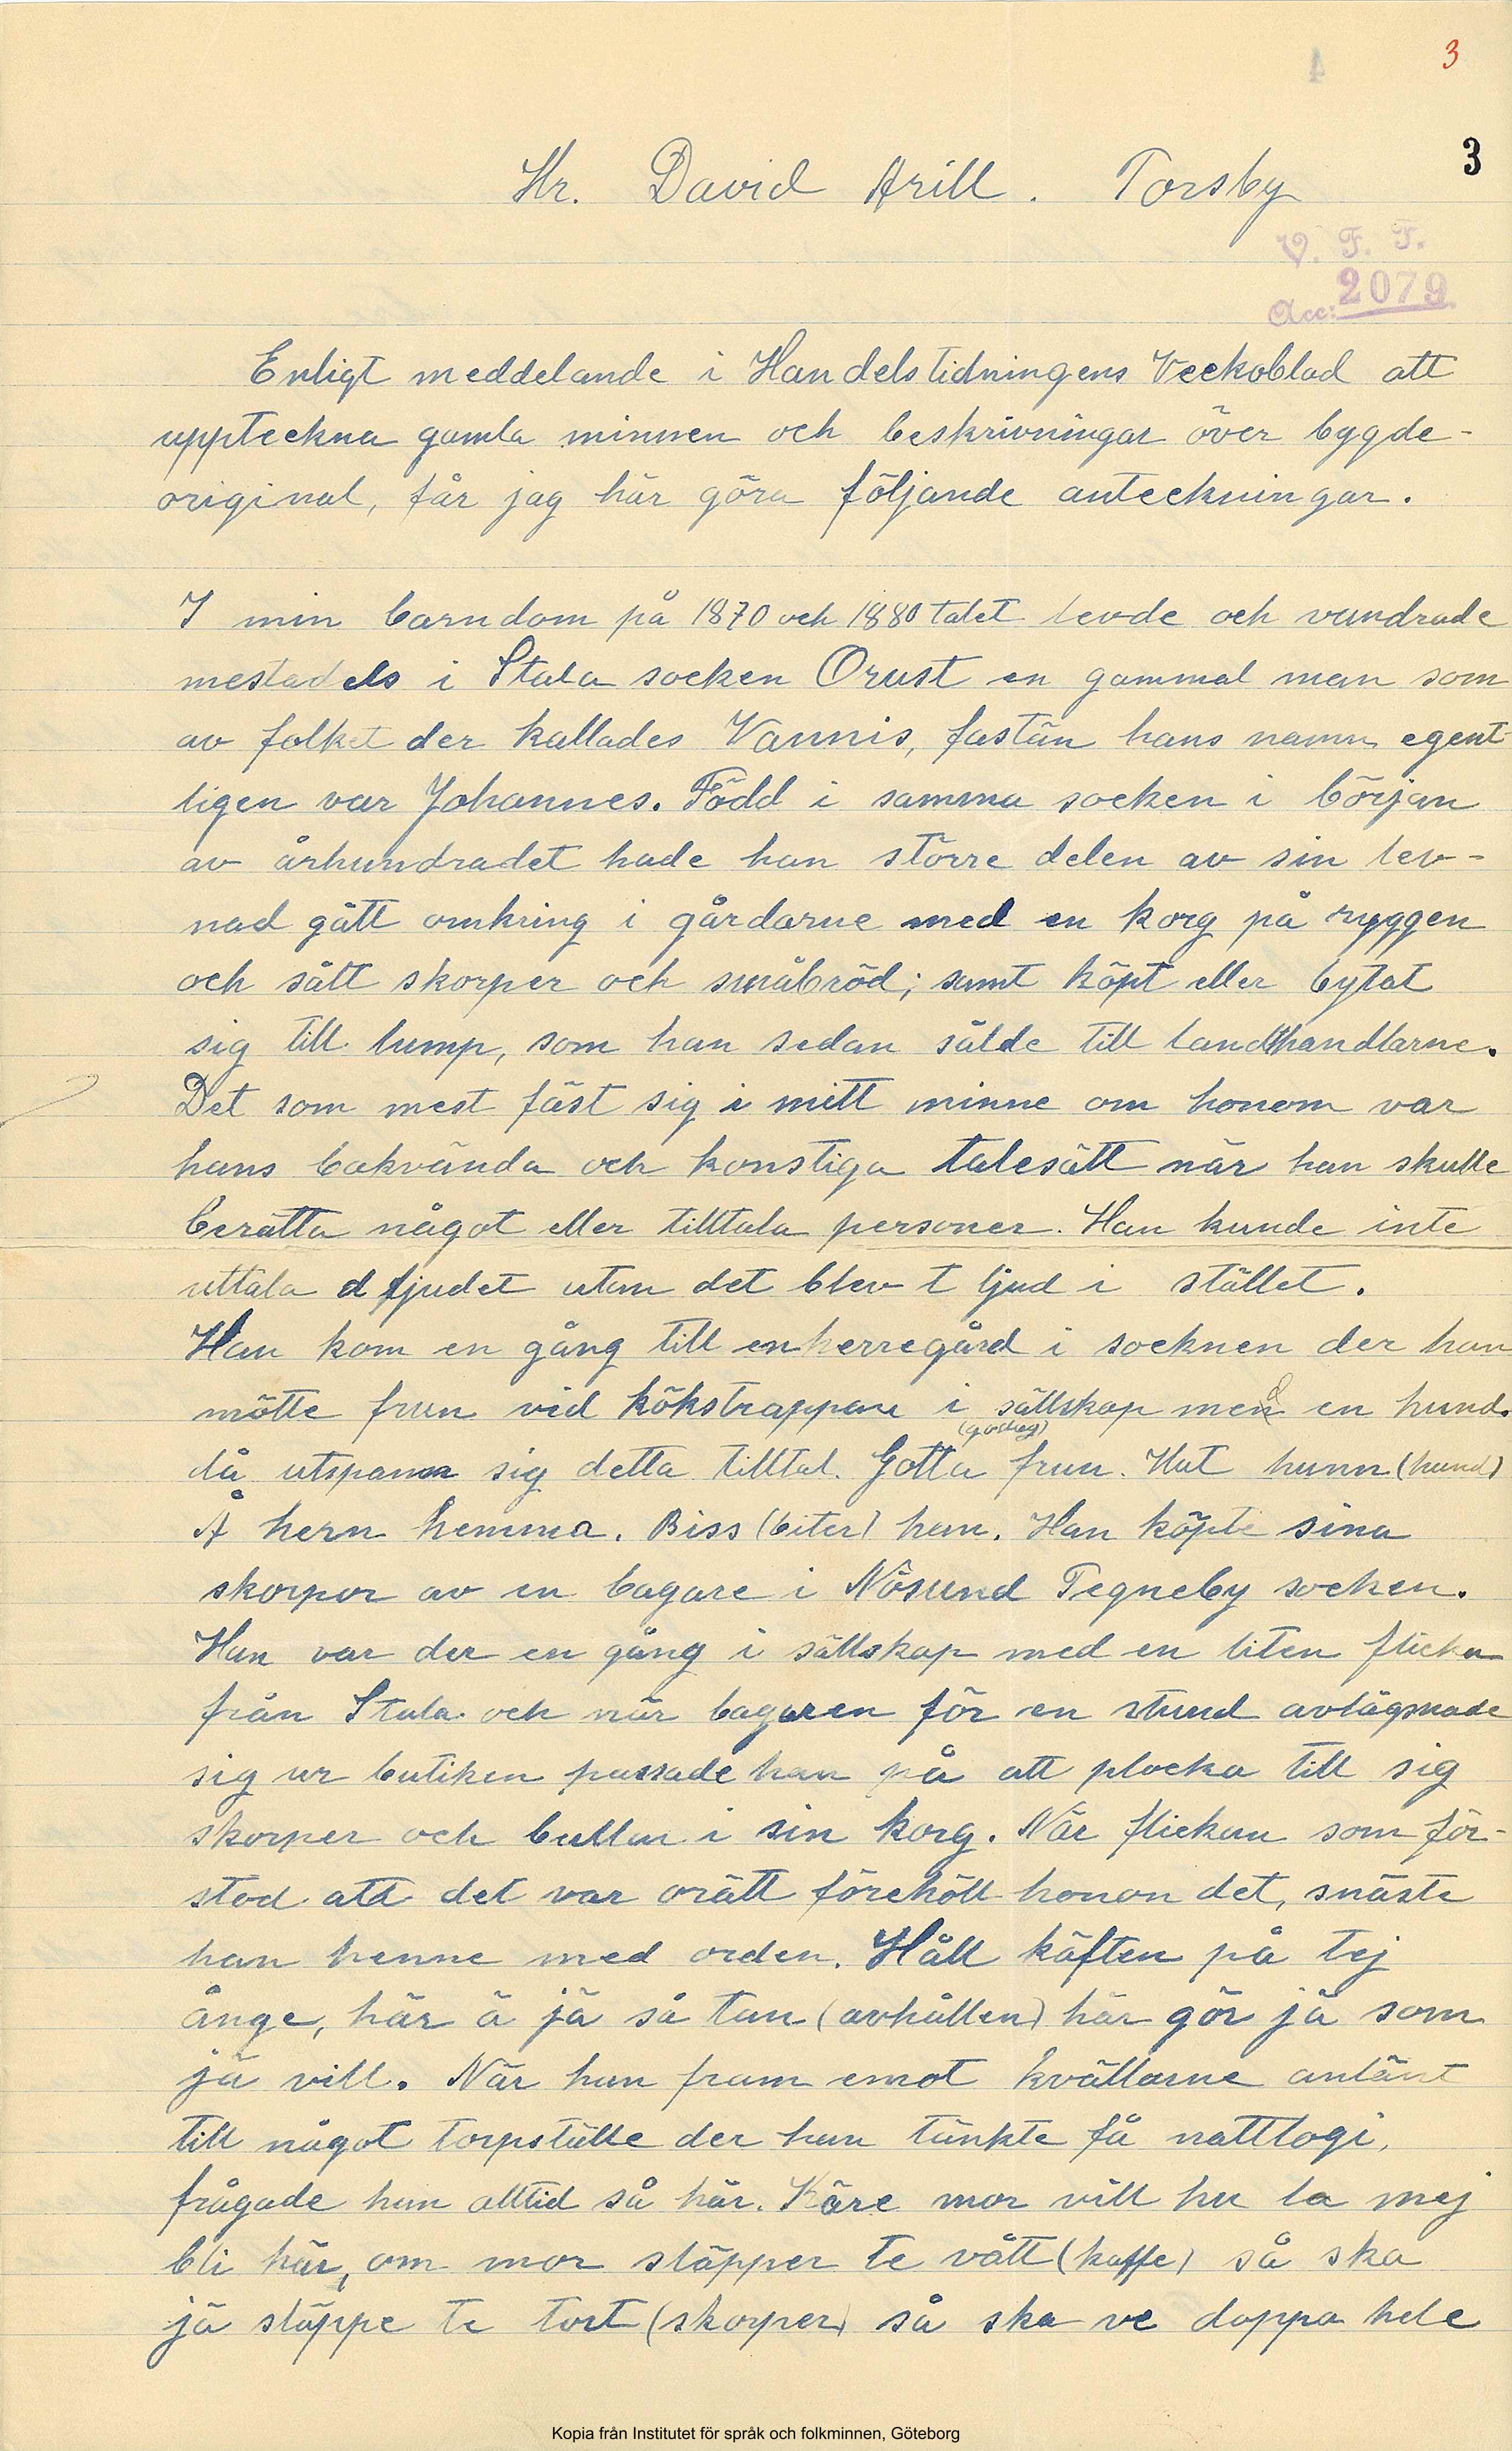 3
3
Hr. David Arill. Torsby
V. F. F.
Acc: 2079
Enligt meddelande i Handelstidningens Veckoblad att
uppteckna gamla minnen och beskrivningar över bygde-
original, får jag här göra följande anteckningar.
I min barndom på 1870 och 1880 talet levde och vandrade
mestadels i Stala socken Orust en gammal man som
av folket der kallades Vannis, fastän hans namn egent-
ligen var Johannes. Född i samma socken i början
av århundradet hade han större delen av sin lev-
nad gått omkring i gårdarne med en korg på ryggen
och sålt skorper och småbröd; samt köpt eller bytat
sig till lump, som han sedan sålde till landthandlarne.
Det som mest fäst sig i mitt minne om honom var
hans bakvända och konstiga talesätt när han skulle
berätta något eller tilltala personer. Han kunde inte
uttala d ljudet utan det blev t ljud i stället.
Han kom en gång till en herregård i socknen der han
mötte frun vid kökstrappan i sällskap med en hund.
då utspann sig detta tilltal. Gotta (godag) frun. Hut hunn (hund)
Å hern hemma. Biss (biter) han. Han köpte sina
skorpor av en bagare i Nösund Tegneby socken.
Han var der en gång i sällskap med en liten flicka
från Stala och när bagaren för en stund avlägsnade
sig ur butiken passade han på att plocka till sig
skorper och bullar i sin korg. När flickan som för-
stod att det var orätt förehöll honon det, snäste
han henne med orden. Håll käften på tej
ånge, här ä jä så tan (avhållen) här gör jä som
jä vill. När han fram emot kvällarne anlänt
till något torpställe der han tänkte få nattlogi,
frågade han alltid så här. Käre mor vill hu la mej
bli här, om mor släpper te vått (kaffe) så ska
jä släppe te tort (skorper) så ska ve doppa hele
Kopia från Institutet för språk och folkminnen, Göteborg